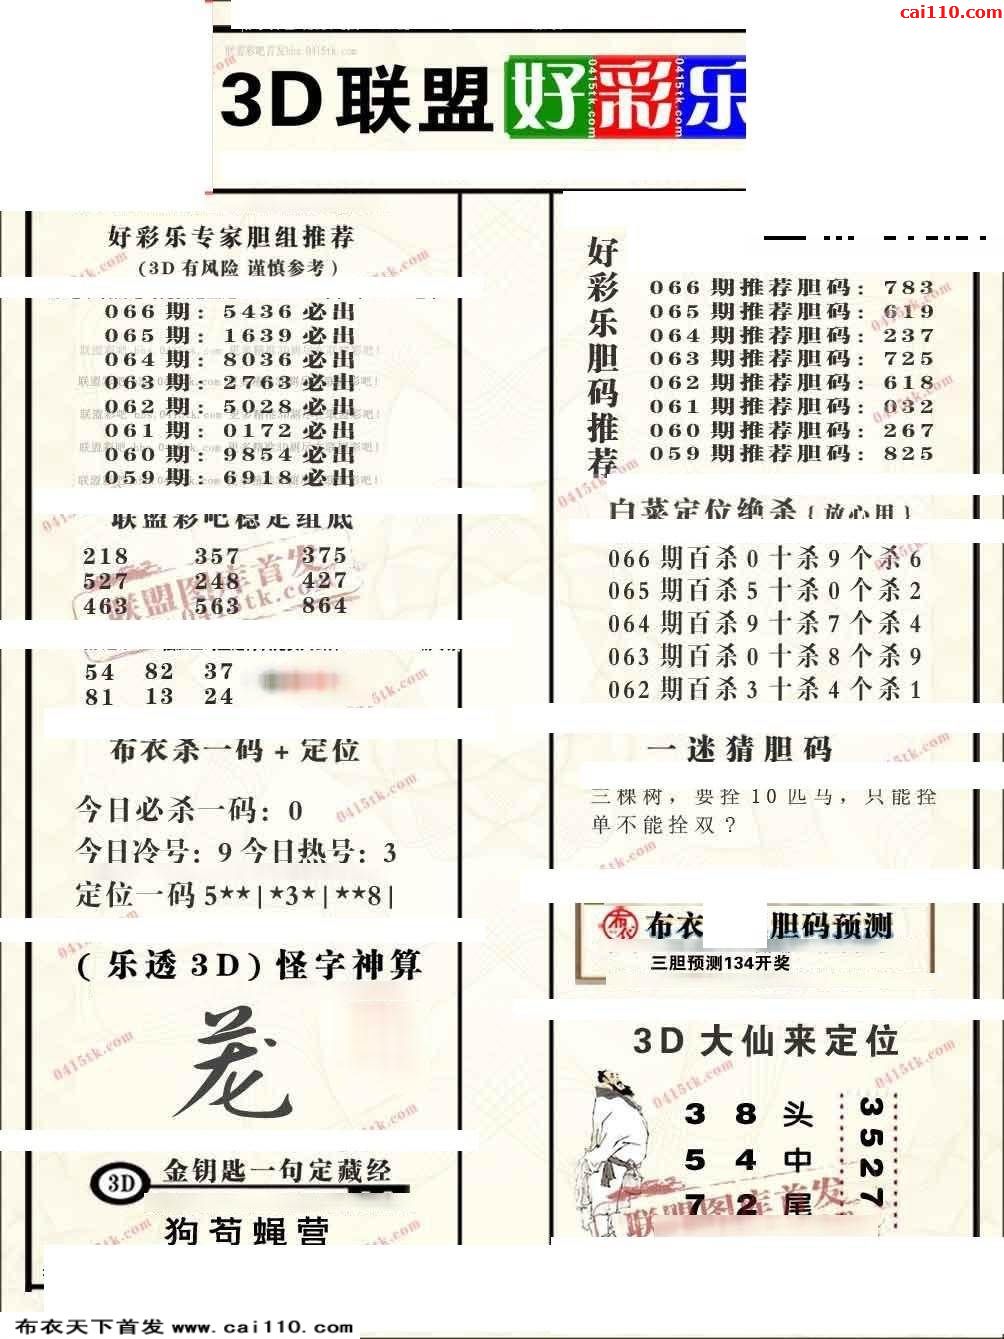 cai110.com
3D联盟好彩乐
好彩乐专家胆组推荐
(3D有风险 谨慎参考)
066期: 5436必出
065期: 1639必出
064期: 8036必出
063期: 2763必出
062期: 5028必出
061期: 0172必出
060期: 9854必出
059期: 6918必出
联盟彩吧稳定组底
218 357 375
527 248 427
463 563 864
54 82 37
81 13 24
布衣杀一码+定位
今日必杀一码: 0
今日冷号: 9 今日热号: 3
定位一码 5**|*3*|**8|
(乐透3D)怪字神算
3D 金钥匙一句定藏经
狗苟蝇营
好彩乐胆码推荐
066期推荐胆码: 783
065期推荐胆码: 619
064期推荐胆码: 237
063期推荐胆码: 725
062期推荐胆码: 618
061期推荐胆码: 032
060期推荐胆码: 267
059期推荐胆码: 825
白菜定位绝杀{放心用}
066期百杀0十杀9个杀6
065期百杀5十杀0个杀2
064期百杀9十杀7个杀4
063期百杀0十杀8个杀9
062期百杀3十杀4个杀1
一迷猜胆码
三棵树，要拴10匹马，只能拴
单不能拴双？
布衣 胆码预测
三胆预测134开奖
3D大仙来定位
3 8 头
5 4 中
7 2 尾
3527
联盟图库首发
0415tk.com
布衣天下首发 www.cai110.com